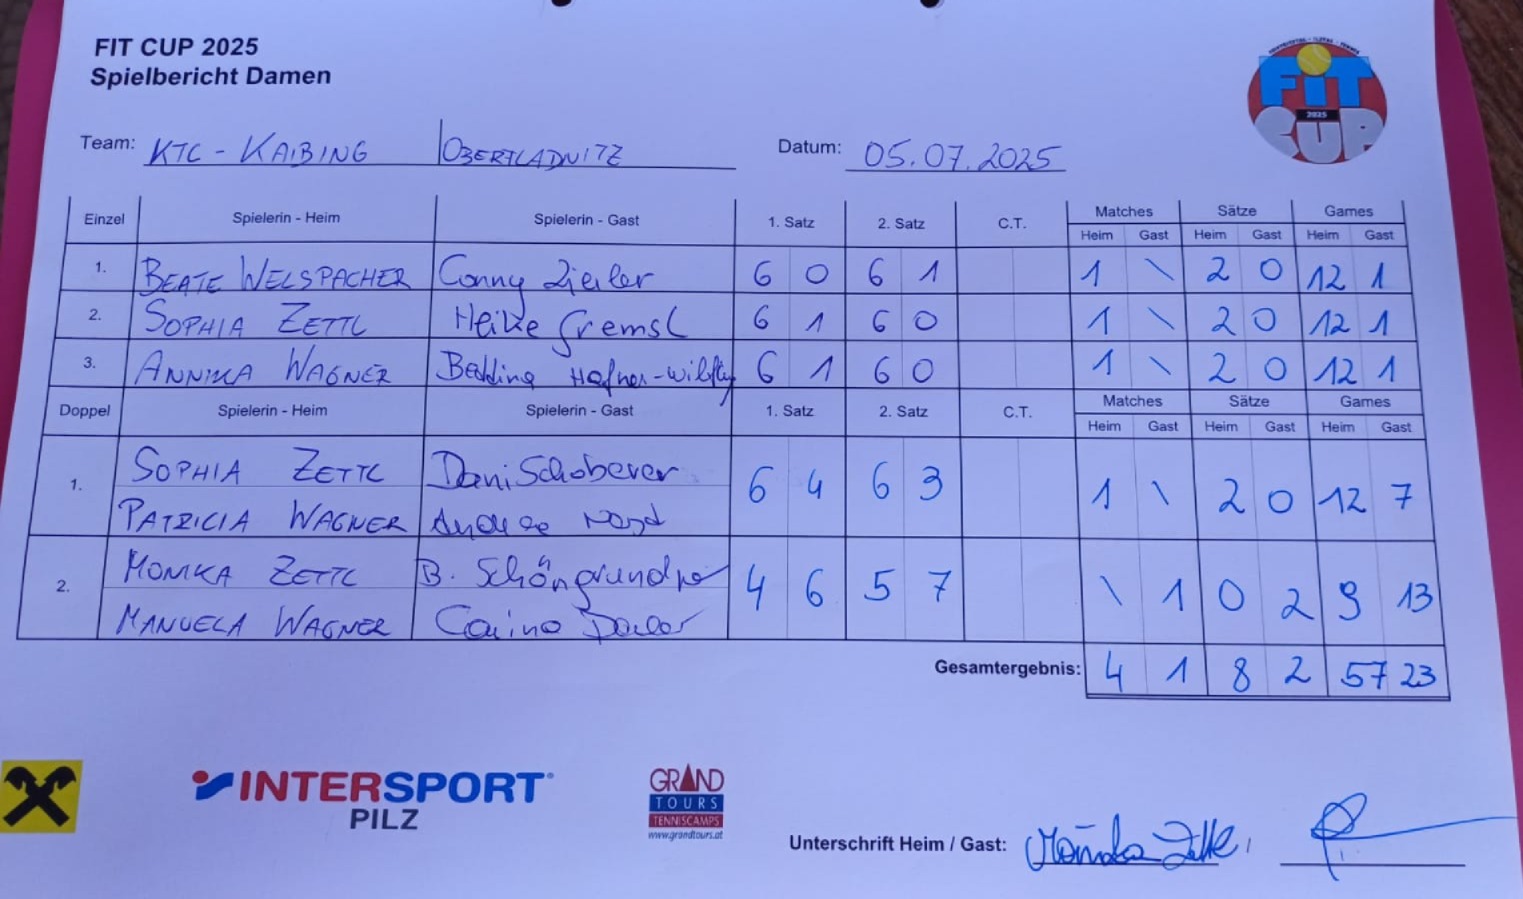 FIT CUP 2025
Spielbericht Damen
FiT CUP 2025
Team: KTC - KAIBING OBERTLADNITZ Datum: 05.07.2025
Einzel Spielerin - Heim Spielerin - Gast 1. Satz 2. Satz C.T. Matches Sätze Games
Heim Gast Heim Gast Heim Gast
1. BEATE WELSPACHER Conny Zieler 6 0 6 1 1 \ 2 0 12 1
2. SOPHIA ZETTL Heike Gremsl 6 1 6 0 1 \ 2 0 12 1
3. ANNIKA WAGNER Hafner- 6 1 6 0 1 \ 2 0 12 1
Doppel Spielerin - Heim Spielerin - Gast 1. Satz 2. Satz C.T. Matches Sätze Games
Heim Gast Heim Gast Heim Gast
1. SOPHIA ZETTL Dani Schoberer 6 4 6 3 1 \ 2 0 12 7
PATRICIA WAGNER
2. MONIKA ZETTL B. 4 6 5 7 \ 1 0 2 9 13
MANUELA WAGNER
Gesamtergebnis: 4 1 8 2 57 23
INTERSPORT
PILZ
GRAND
TOURS
TENNISCAMPS
www.grandtours.at
Unterschrift Heim / Gast: